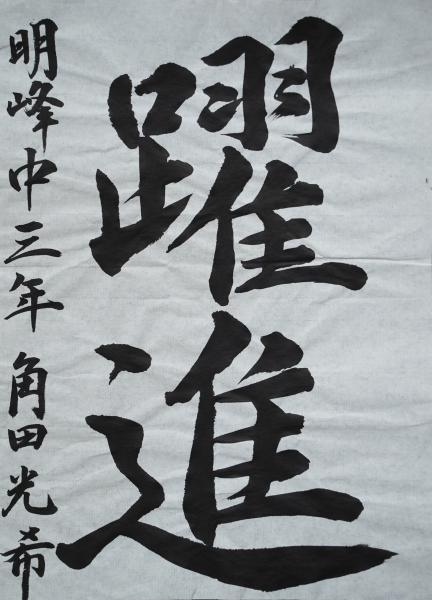 躍進
明峰中三年 角田光希